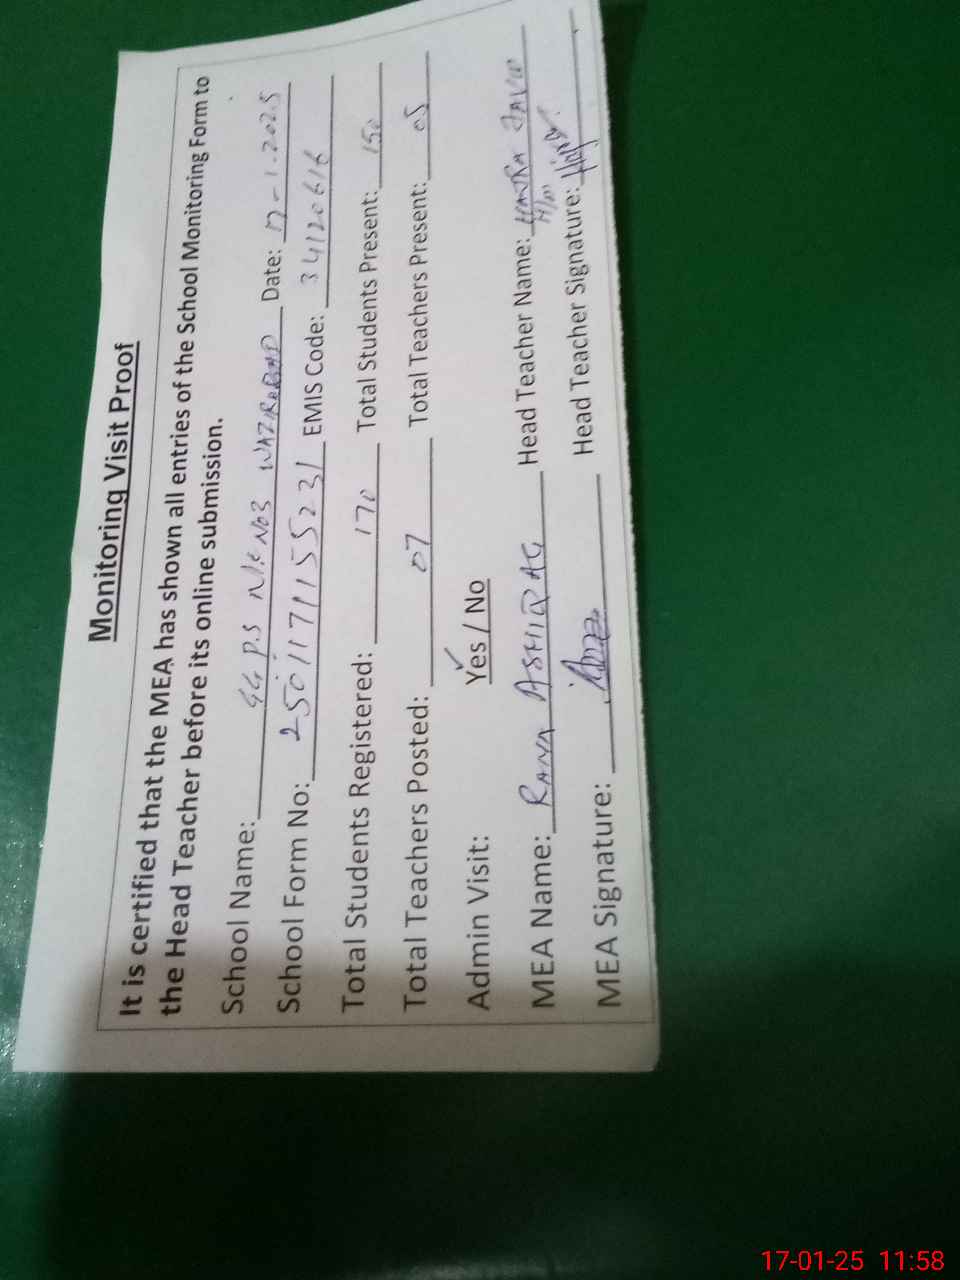 Monitoring Visit Proof
It is certified that the MEA has shown all entries of the School Monitoring Form to
the Head Teacher before its online submission.
School Name: GGPS N/E No3 WAZIRABAD Date: 17-1.2025
School Form No: 2501171155231 EMIS Code: 34120616
Total Students Registered: 170 Total Students Present: 150
Total Teachers Posted: 07 Total Teachers Present: 05
Admin Visit: Yes / No
MEA Name: RANA ASHIQ AG Head Teacher Name: JAVID
MEA Signature: Head Teacher Signature:
17-01-25 11:58